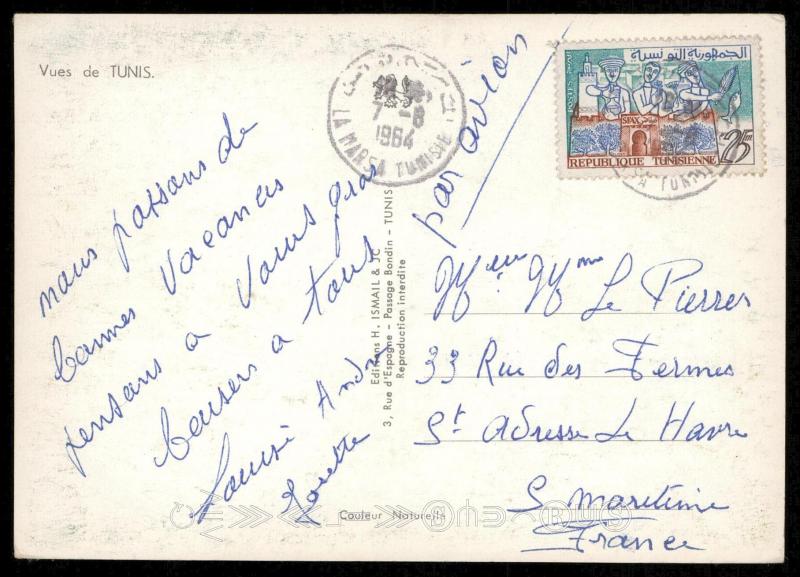 Vues de TUNIS.
nous passons de
bonnes vacances
pensons a vous gros
baisers a tous
Louise André
par avion
LA MARSA TUNISIE
7-8
1964
الجمهورية التونسية
POSTES
SFAX صفاقس
25
REPUBLIQUE TUNISIENNE
Editions H. ISMAIL & JC
3, Rue d'Espagne - Passage Bondin - TUNIS
Reproduction interdite
Mme Le Pierres
33 Rue des Fermes
St adresse Le Havre
S. Maritime
France
Couleur Naturelle